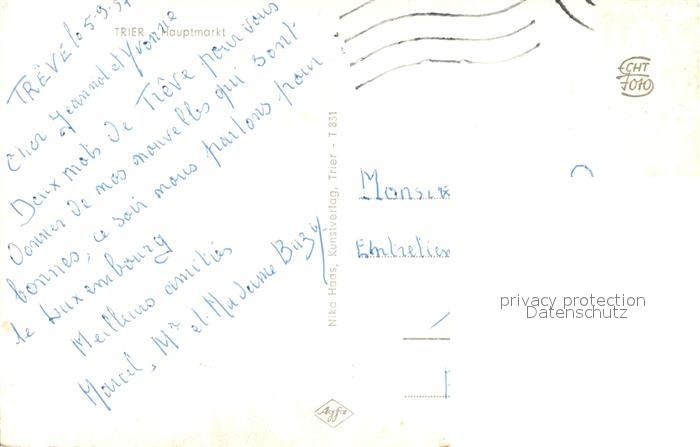 TRIER - Hauptmarkt
TRÈVE le 5-9-57
Cher Jeannot et Yvonne
Deux mots de Trêve pour vous
donner de nos nouvelles qui sont
bonnes, ce soir nous partons pour
le Luxembourg
Meilleurs amitiés
Marcel, Mr et Madame Buzy
Niko Haas, Kunstverlag, Trier - T 831
Agfa
ECHT
FOTO
Monsie
Entretien
privacy protection
Datenschutz